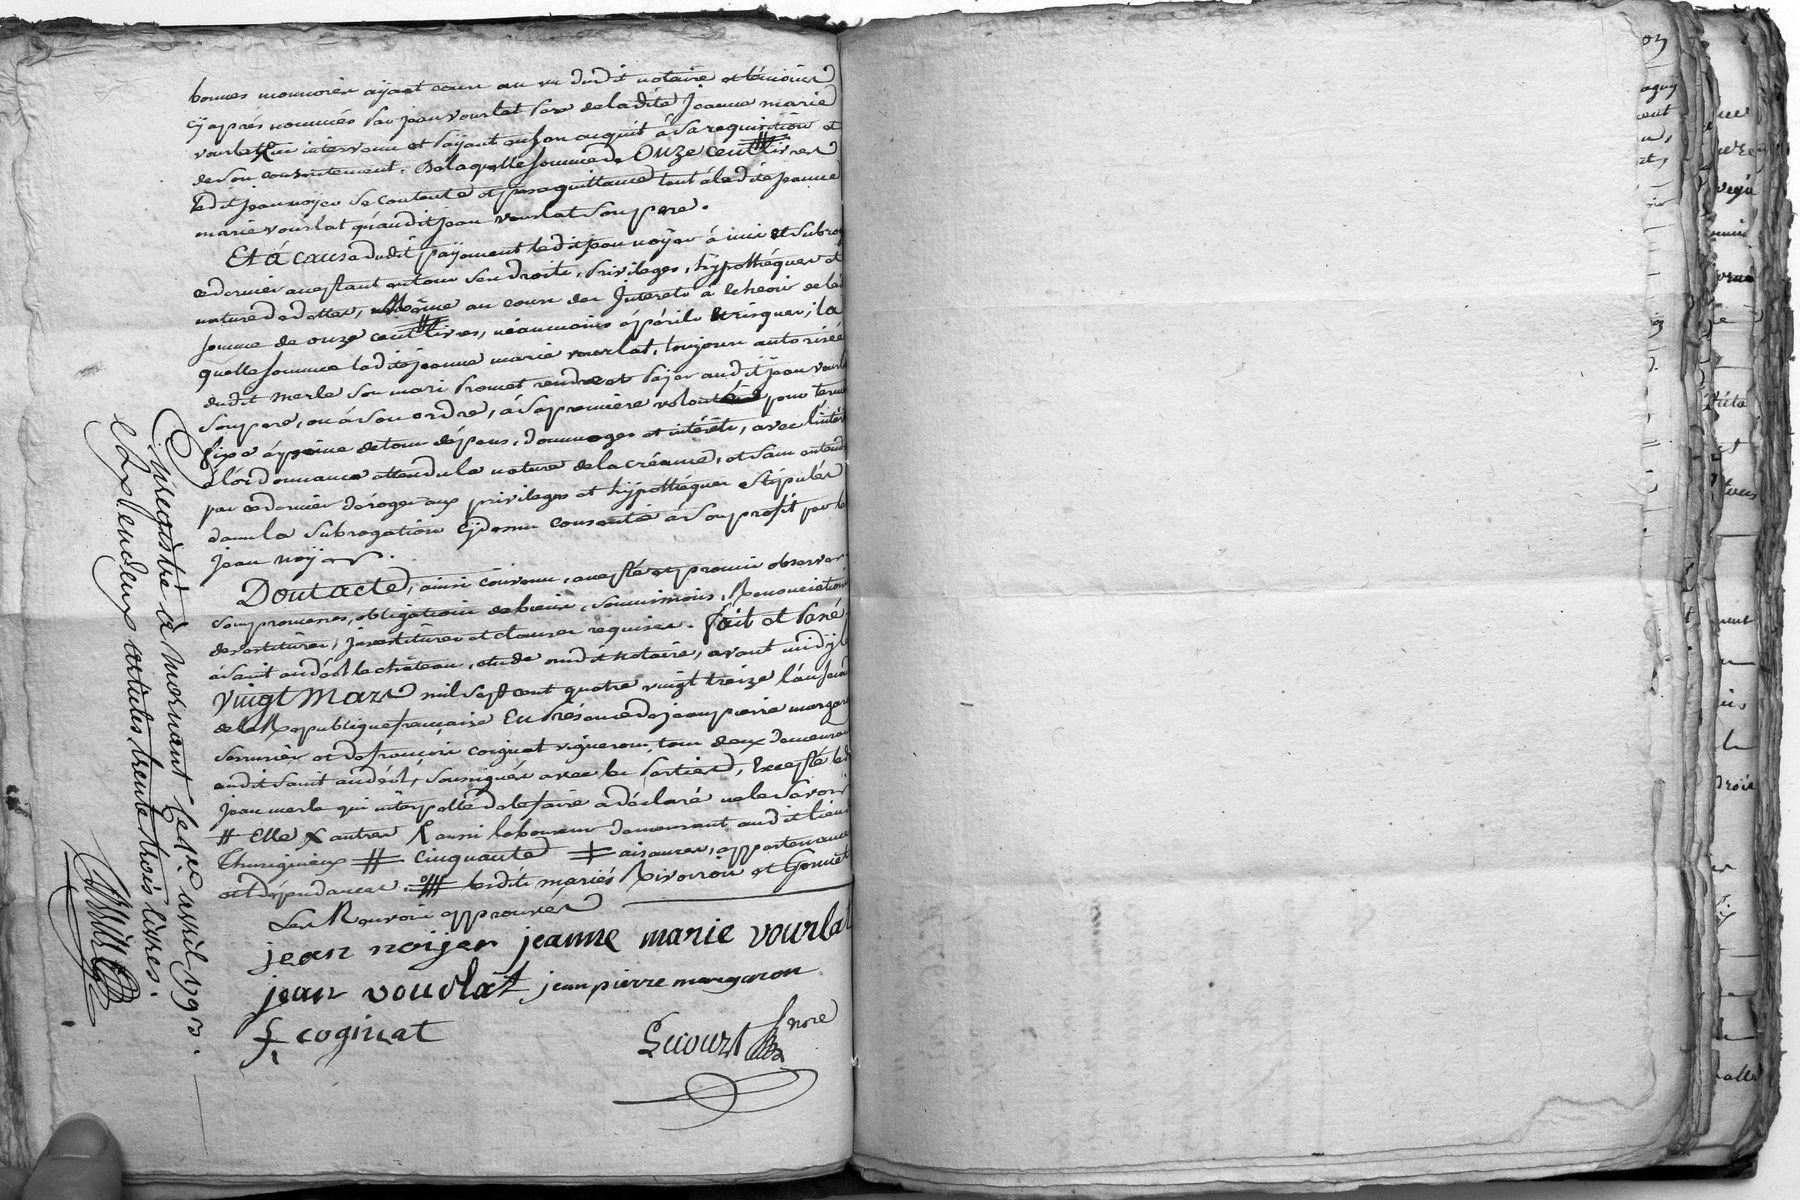 bonnes monnoies ayant cour au vu dudit notaire et témoins
cÿ aprés nommés par jean vourlat pere de la dite Jeanne marie
vourlat, ici intervenu et payant en son acquit à sa requisition et
de son consentement. De laquelle somme de Onze cent livres
ledit jean noÿer se contente et passe quittance tant à ladite jeanne
marie vourlat qu'audit jean vourlat son pere.
Et à cause dudit payement ledit jean noÿer à mis et subrogé
ce dernier acceptant en tous ses droits, privileges, hypothéques et
nature de dettes, même au cours des Interets à écheoir de la d
somme de onze cent livres, néanmoins à périls et risques, la
quelle somme ladite jeanne marie vourlat, toujours autorisée
dudit merle son mari promet rendre et paÿer audit jean vourlat
son pere, ou à son ordre, à sa premiere volonté pour terme
fixe à peine de tous dépens, dommages et intérêts, avec l'intérêt
à l'ordonnance attendu la nature de la créance, et sans entendre
par ce dernier déroger aux privileges et hypothéques stipulés
dans la subrogation cÿ dessus consentie à son profit par le
jean noÿer.
Dont acte, ainsi convenu, accepté et promis observer
sous promesses, obligations de biens, soumissions, Renonciations
devestitures, investitures et clauses requises. fait et passé
à saint andéol le château, étude dudit notaire, avant midy le
Vingt Mars mil sept cent quatre vingt treize l'an second
de la République française En présence de jean pierre margaron
serrurier et de françois coignat vigneron, tous deux demeurant
audit saint andéol, soussignés avec les parties, Excepté le d
jean merle qui interpellé de le faire a déclaré ne le savoir
# Elle x autres aussi laboureur demeurant audit lieu
Thurigneux # cinquante ǂ aisances, appartenances
et dépendances. # lesdits mariés Rivoiron et Gonnet
Les Renvois approuvés
jean noijer jeanne marie vourlat
jean vourlat jean pierre margaron
f. coginat
Lucourt nore
Enregistré à Mornant le 1er avril 1793.
trente trois livres.